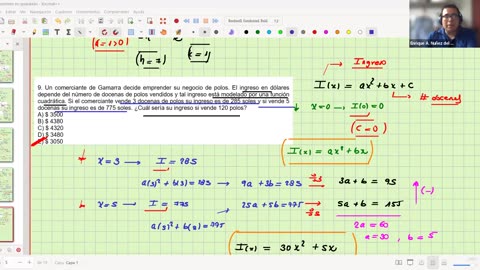 (k=1>0)
(h=7)
(k=1)
Ingreso
I(x) = ax²+bx+c
# docenas
9. Un comerciante de Gamarra decide emprender su negocio de polos. El ingreso en dólares
depende del número de docenas de polos vendidos y tal ingreso está modelado por una función
cuadrática. Si el comerciante vende 3 docenas de polos su ingreso es de 285 soles y si vende 5
docenas su ingreso es de 775 soles. ¿Cuál sería su ingreso si vende 120 polos?
A) $ 3900
B) $ 4380
C) $ 4320
D) $ 3480
E) $ 3050
x=0 → I(0)=0
(c=0)
I(x) = ax²+bx
x=3 → I=285
a(3)²+b(3)=285 → 9a+3b=285
3a+b=95
x=5 → I=775
a(5)²+b(5)=775
25a+5b=775
5a+b=155
(-)
2a=60
a=30, b=5
I(x) = 30x²+5x
Enrique A. Núñez del